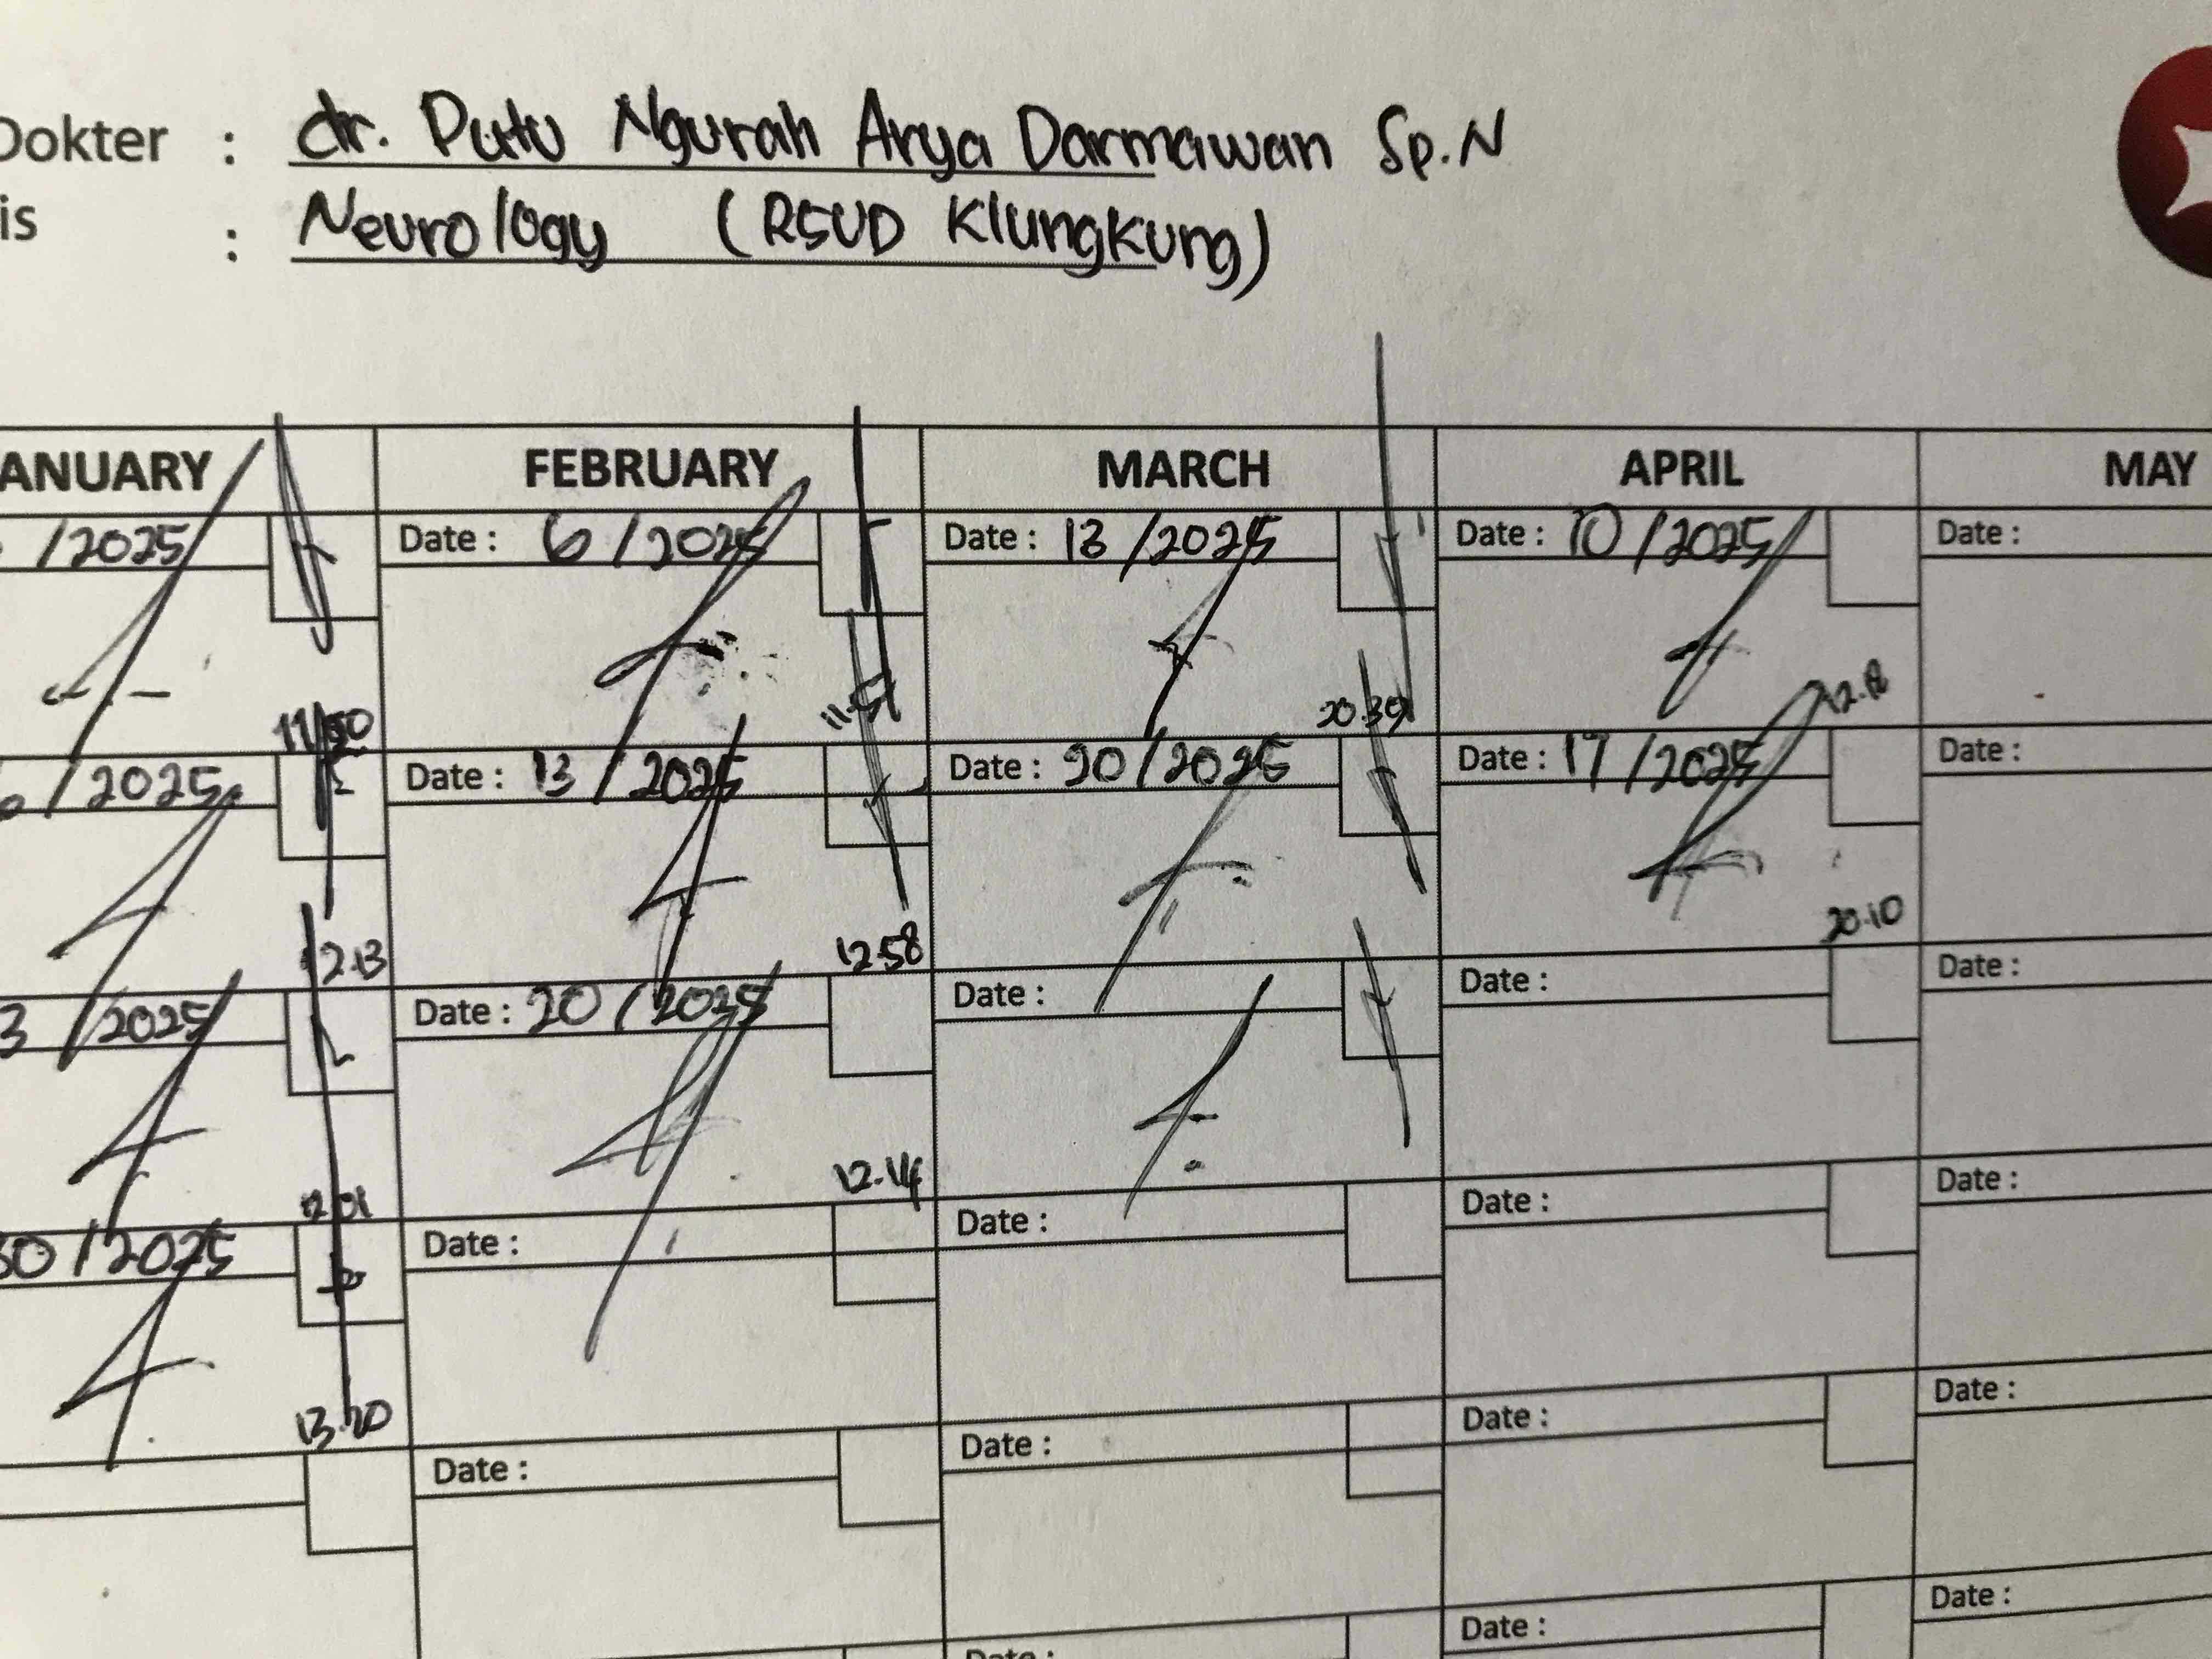 Dokter : dr. Putu Ngurah Arya Darmawan Sp.N
is : Neurology (RSUD Klungkung)
ANUARY FEBRUARY MARCH APRIL MAY
/2025 Date : 6 /2025 Date : 13 /2025 Date : 10 /2025 Date :
11.50 11.51 20.39
/2025 Date : 13 / 2025 Date : 20/2025 Date : 17 /2025 Date :
12.13 12.58 20.10
3 /2025 Date : 20 / 2025 Date : Date : Date :
12.01 12.14
30 /2025 Date : Date : Date : Date :
13.20
Date : Date : Date : Date :
Date : Date : Date :